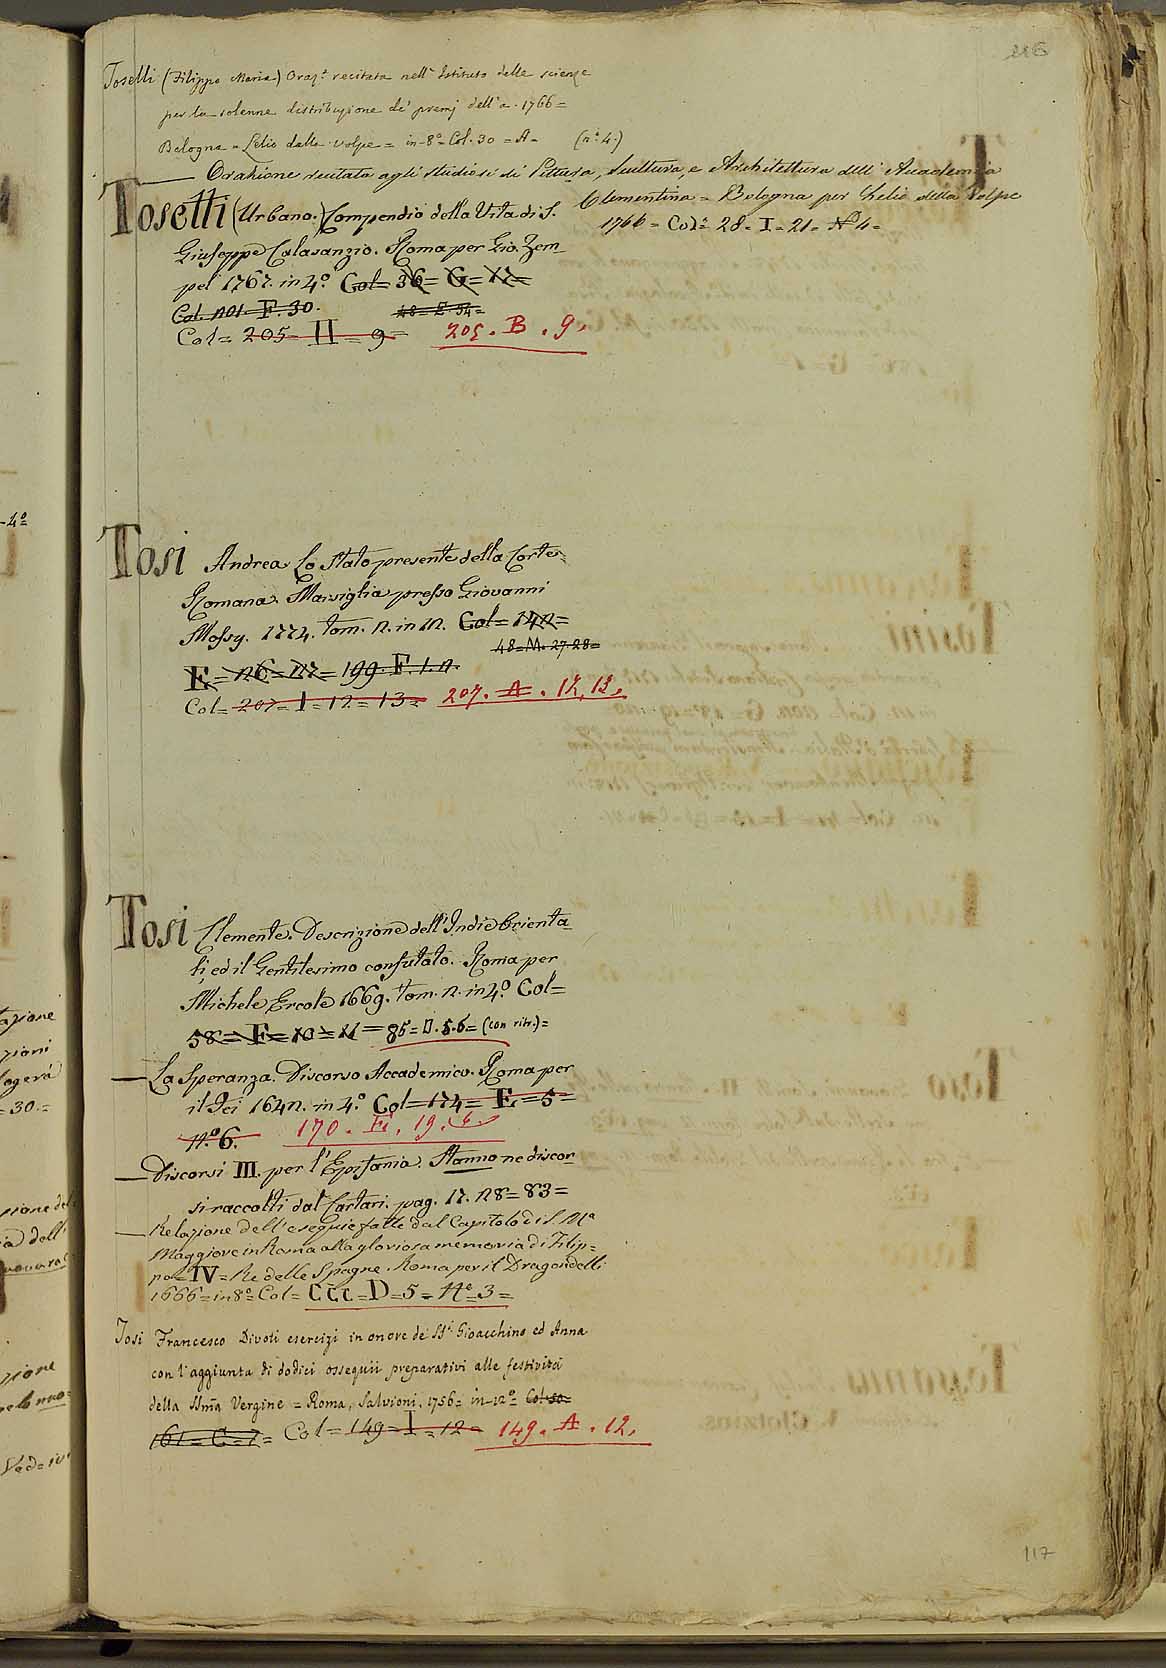 116
Toselli (Filippo Maria) Oraz.e recitata nell'Istituto delle scienze
per la solenne distribuzione de' premj dell'a. 1766=
Bologna = Lelio dalla Volpe = in-8º Col. 30 = A= (nº 4.)
— Orazione recitata agli studiosi di Pittura, Scultura, e Architettura dell' Accademia
Clementina = Bologna per Lelio della Volpe
1766 = Col= 28 = I = 21 = Nº 4 =
Tosetti (Urbano.) Compendio della Vita di S.
Giuseppe Calasanzio. Roma per Gio. Zem-
pel 1767. in 4º. Col= 36= G= 17=
Col. 101. F. 30. 48= E 34=
Col= 205= II = 9= 205. B. 9.
Tosi Andrea Lo Stato presente della Corte
Romana. Marsiglia presso Giovanni
Mossy. 1774. tom. 2. in 12. Col= 142=
48= M. 27.28=
E = 26= 27= 199. F. 1. 2.
Col= 207= I = 12= 13= 207. A. 12, 13,
Tosi Clemente. Descrizione dell'Indie Orienta-
li, ed il Gentilesimo confutato. Roma per
Michele Ercole 1669. tom. 2. in 4º. Col=
58= F= 10= 11= 85= D. 5.6= (con ritr.)=
— La Speranza. Discorso Accademico. Roma per
il Dei 1642. in 4º. Col= 174= E= 5=
Nº 6. 170. E. 19. 6.
— Discorsi III. per l'Epifania. Stanno ne discor-
si raccolti dal Cartari. pag. 17. 28= 83=
— Relazione dell'esequie fatte dal Capitolo di S. Mª
Maggiore in Roma alla gloriosa memoria di Filip=
po= IV= Re delle Spagne. Roma per il Dragondelli
1666= in 8º= Col= CCC= D= 5= Nº= 3=
Tosi Francesco Divoti esercizi in onore de' SS.i Gioacchino ed Anna
con l'aggiunta di dodici ossequii preparativi alle festività
della SSma Vergine = Roma, Salvioni, 1756= in-12º Col 50=
161= C= 7= Col= 149= I = 12= 149. A. 12.
117